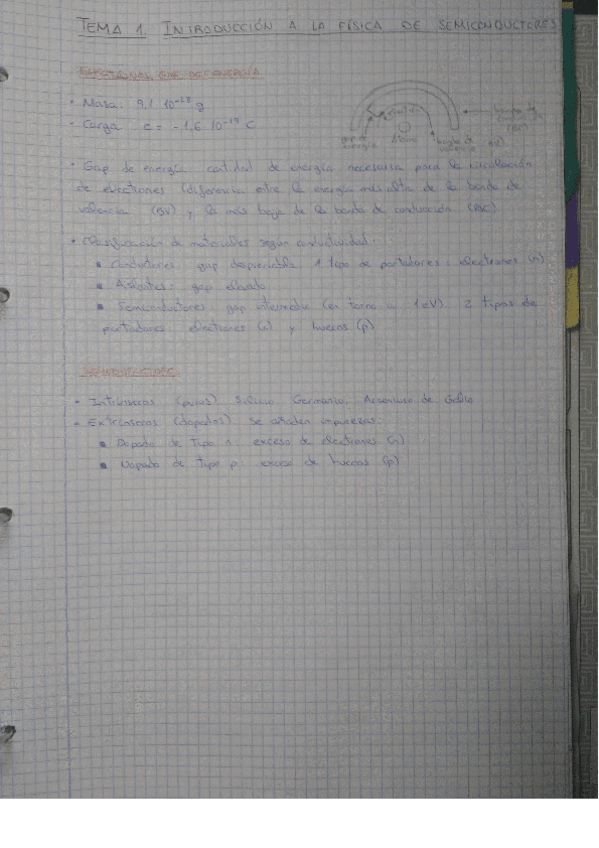 TEMA 1. INTRODUCCIÓN A LA FÍSICA DE SEMICONDUCTORES
ELECTRONES. GAP DE ENERGÍA
• Masa: 9,1 · 10⁻²⁸ g
• Carga: e = -1,6 · 10⁻¹⁹ C
átomo
gap de energía
banda de valencia
banda de
(BC)
• Gap de energía: cantidad de energía necesaria para la circulación
de electrones (diferencia entre la energía más alta de la banda de
valencia (BV) y la más baja de la banda de conducción (BC)
• Clasificación de materiales según conductividad:
▪ Conductores: gap despreciable. 1 tipo de portadores: electrones (n)
▪ Aislantes: gap elevado
▪ Semiconductores: gap intermedio (en torno a 1 eV). 2 tipos de
portadores: electrones (n) y huecos (p)
SEMICONDUCTORES
• Intrínsecos (puros). Silicio, Germanio, Arseniuro de Galio
• Extrínsecos (dopados). Se añaden impurezas.
▪ Dopado de Tipo n: exceso de electrones (n)
▪ Dopado de Tipo p: exceso de huecos (p)